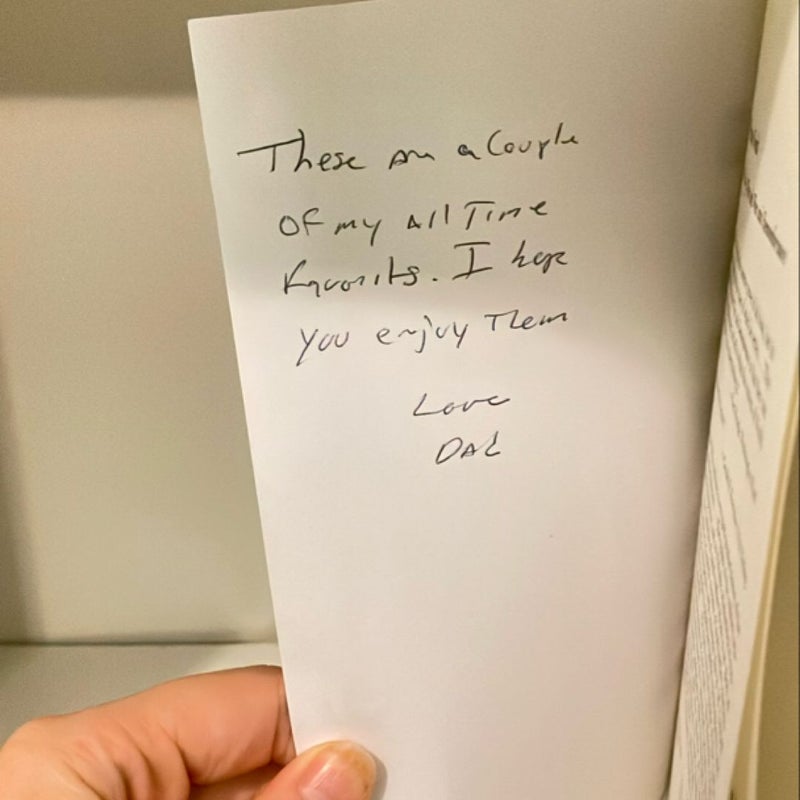 These are a Couple
Of my All Time
favorits. I hope
you enjoy Them
Love
DAd